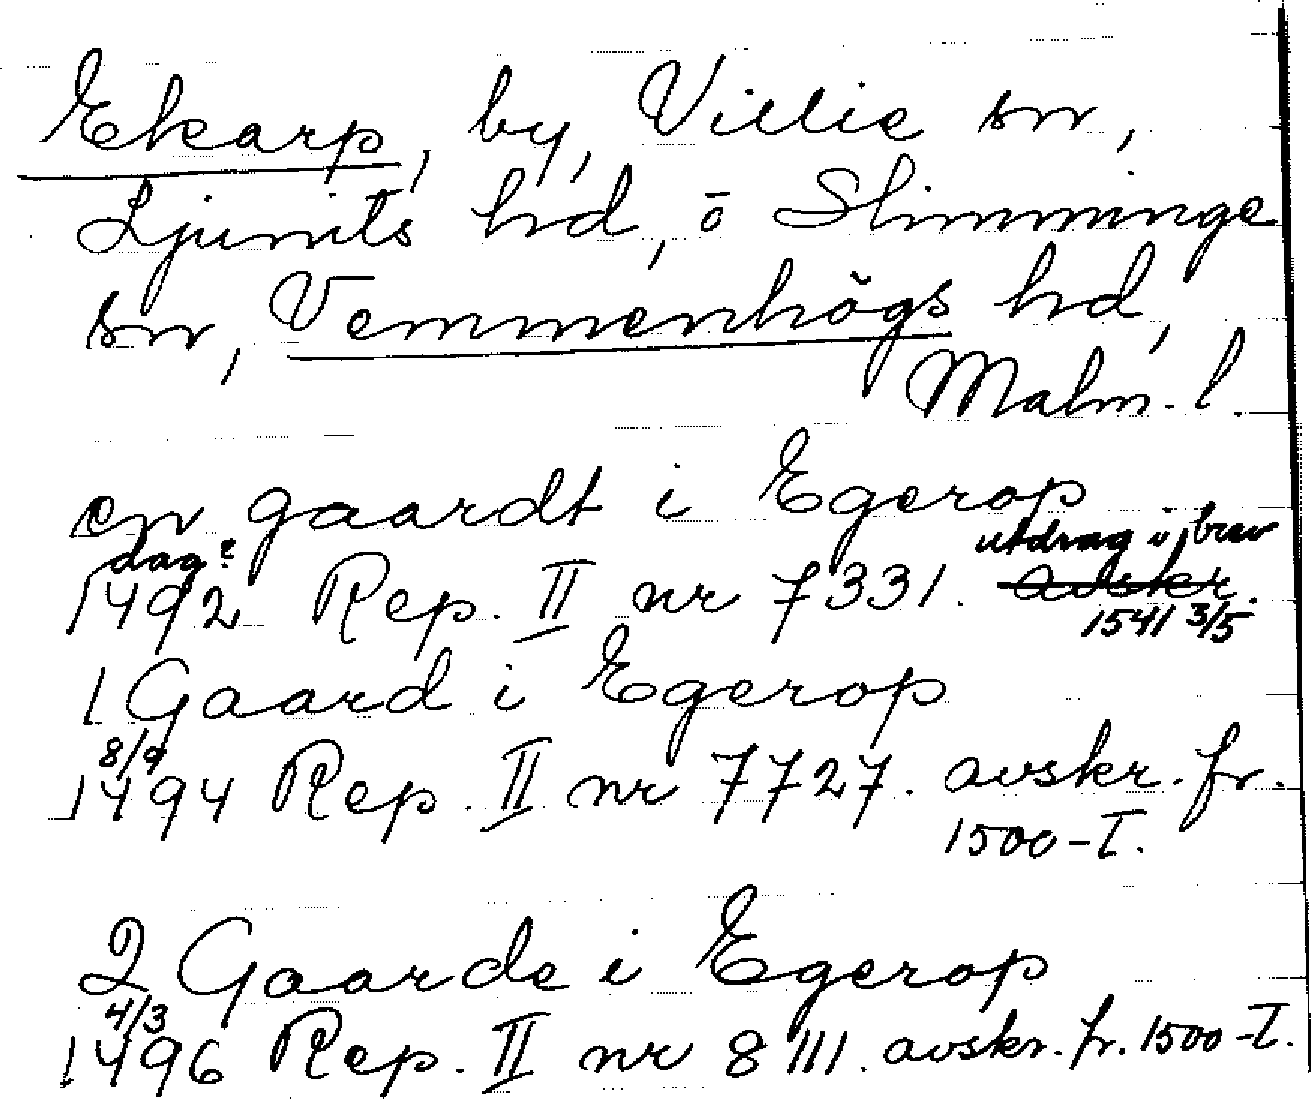 Ekarp, by, Villie sn,
Ljunits hd, o Slimminge
sn, Vemmenhögs hd,
Malm. l.
en gaardt i Egerop
dag? utdrag i brev
1492 Rep. II nr 7331. avskr.
1541 3/5
1 Gaard i Egerop
8/9
1494 Rep. II nr 7727. avskr. fr.
1500-T.
2 Gaarde i Egerop
4/3
1496 Rep. II nr 8111. avskr. fr. 1500-T.